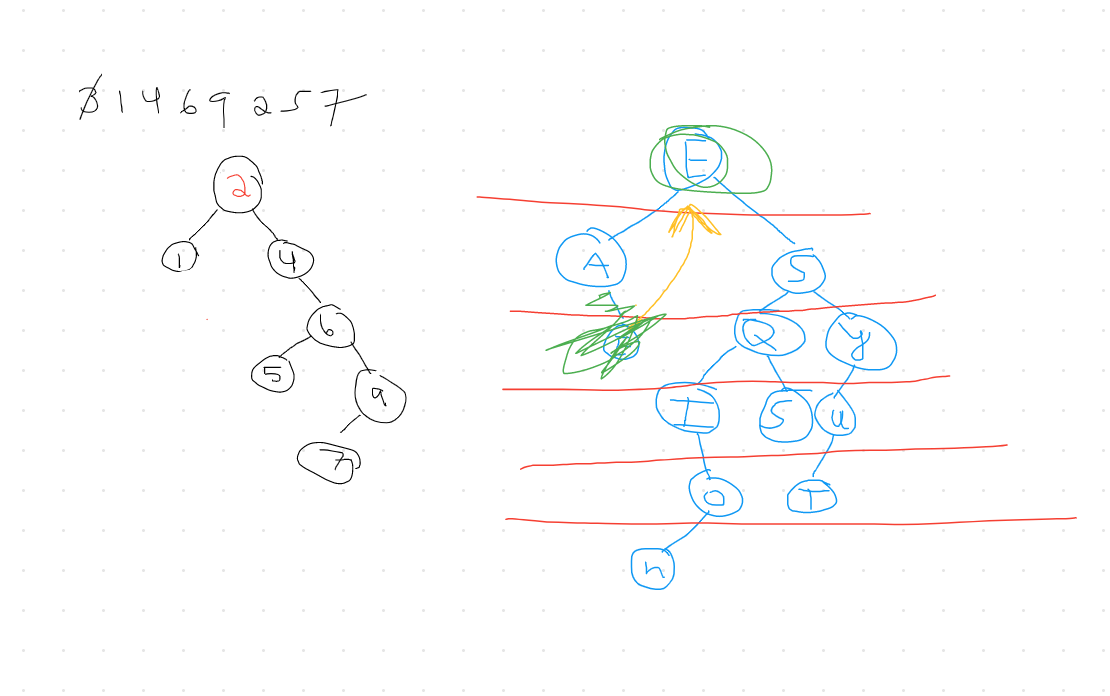 3 1 4 6 9 2 5 7
2
1 4
6
5
9
7
E
A S
Q y
I S u
O T
n